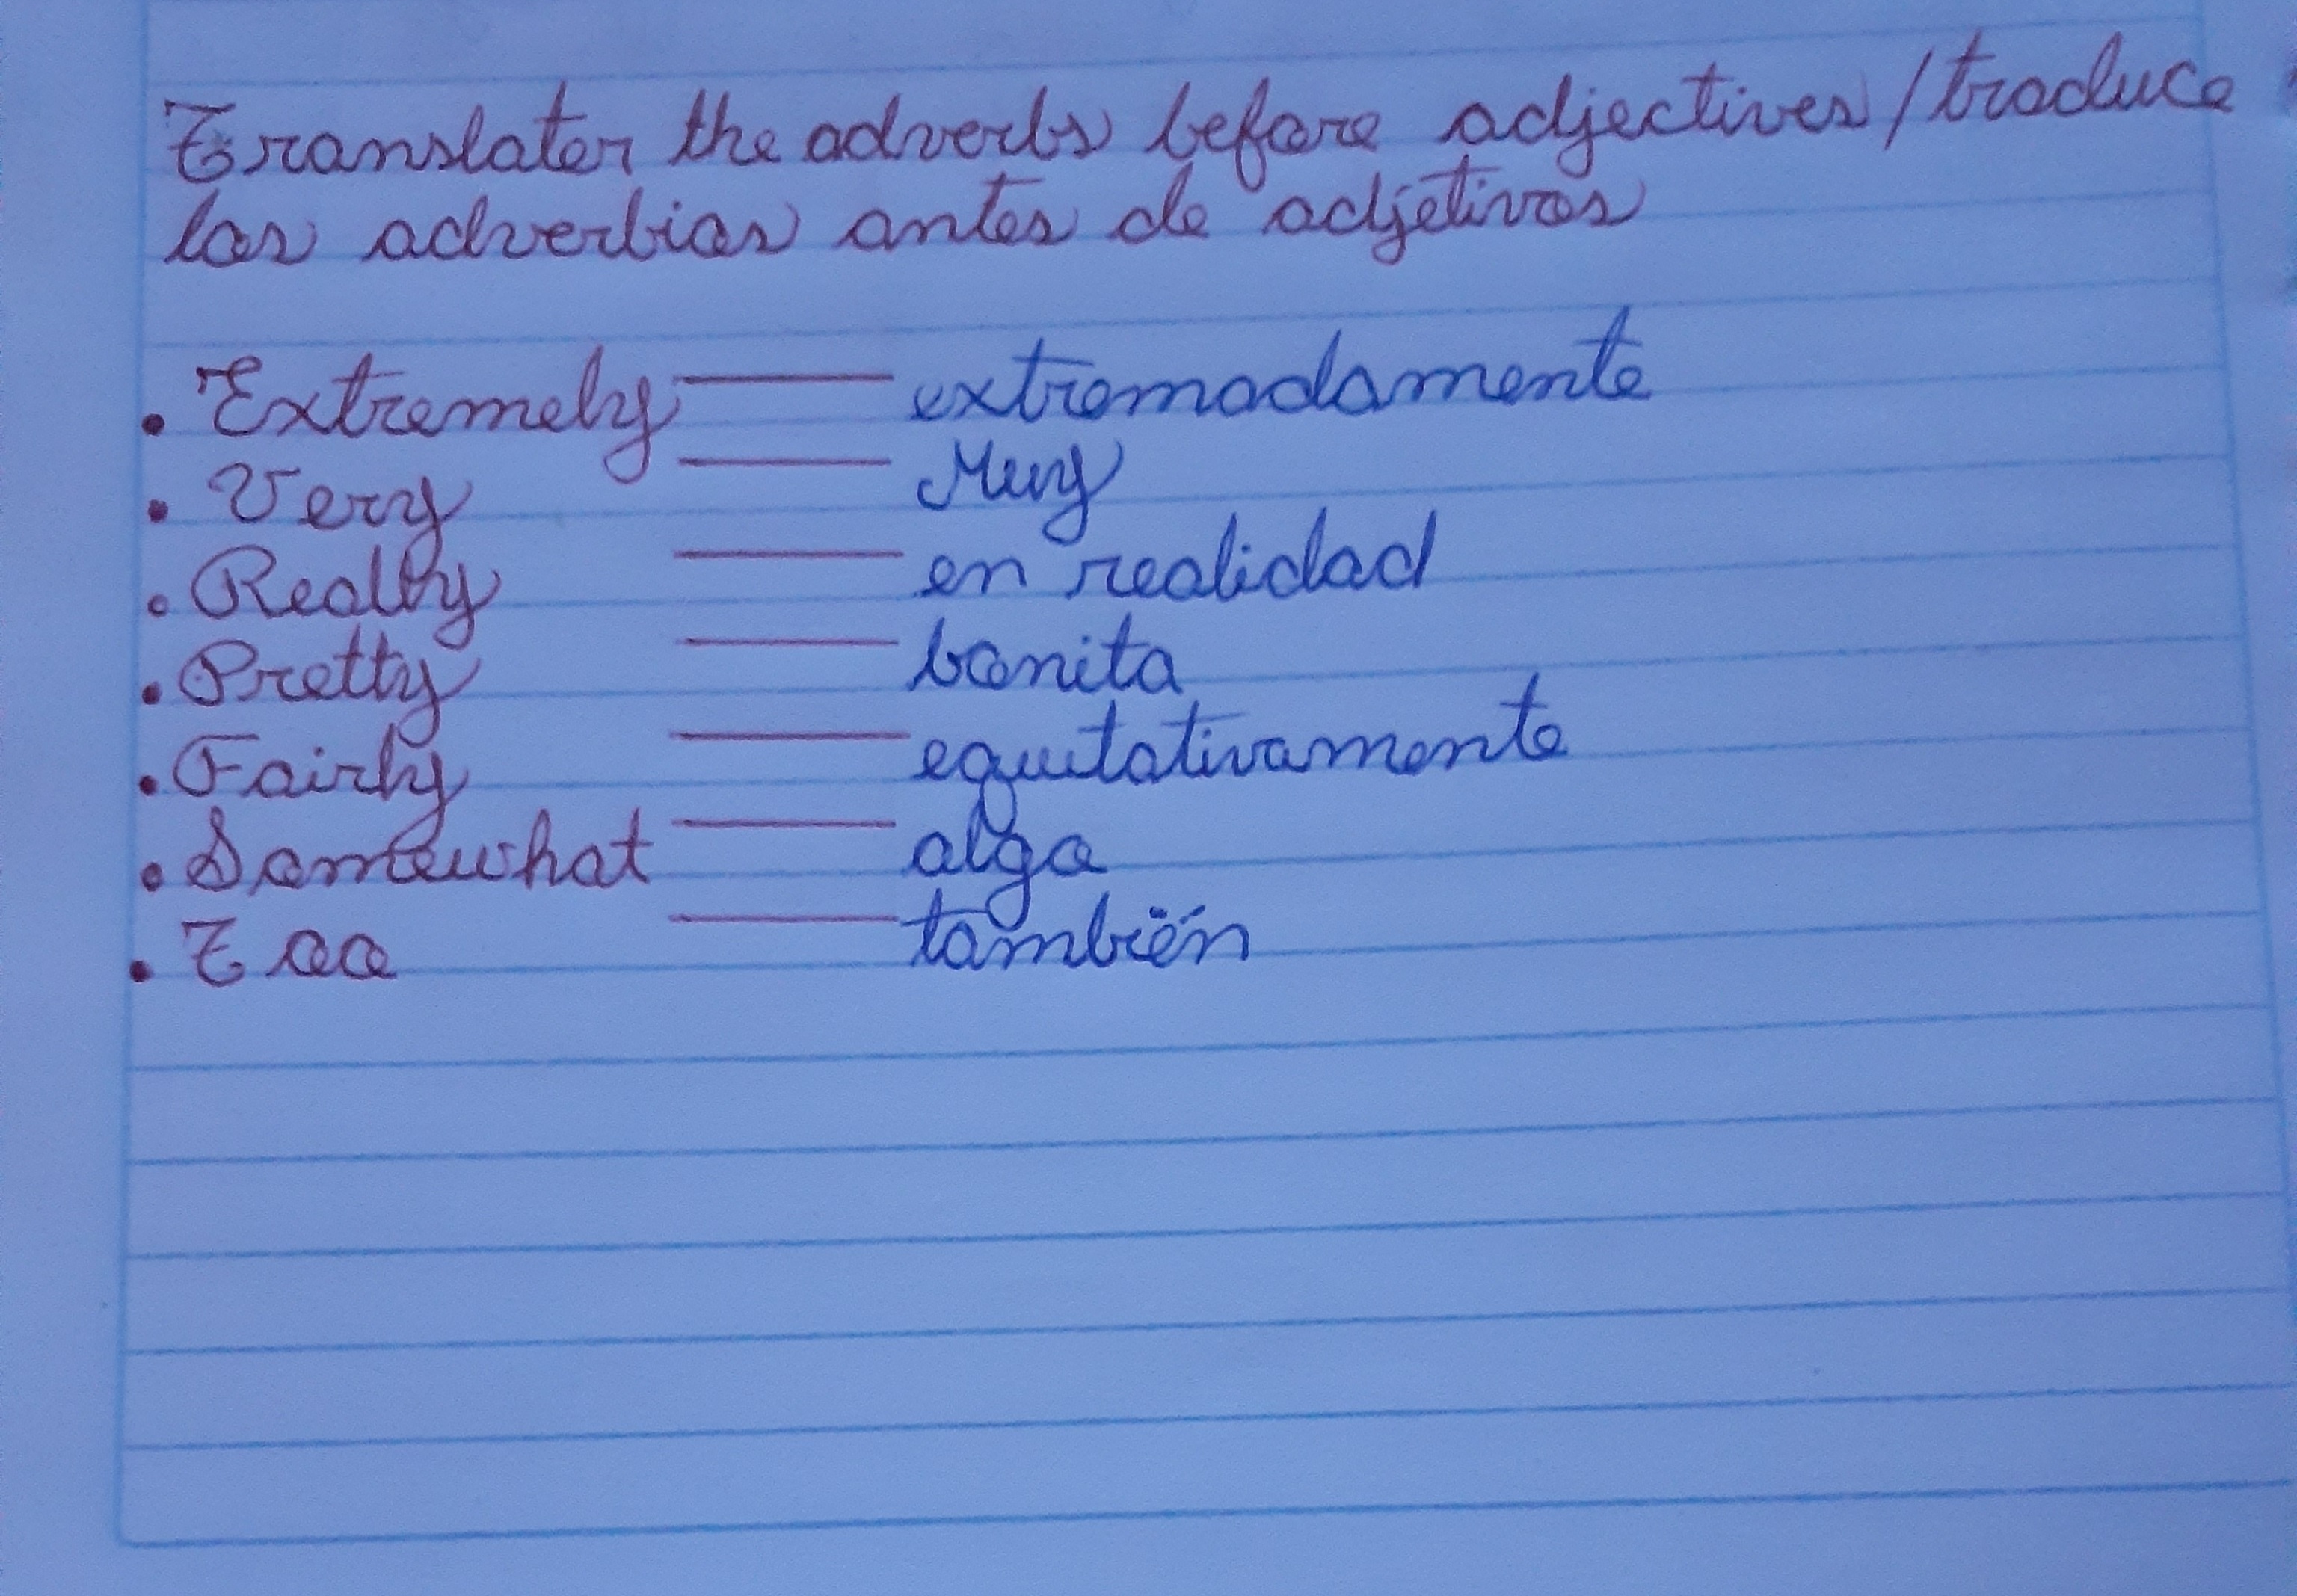 Translater the adverbs before adjectives / traduce
los adverbios antes de adjetivos
• Extremely —— extremadamente
• Very —— Muy
• Really —— en realidad
• Pretty —— bonita
• Fairly —— equitativamente
• Somewhat —— algo
• Too —— también